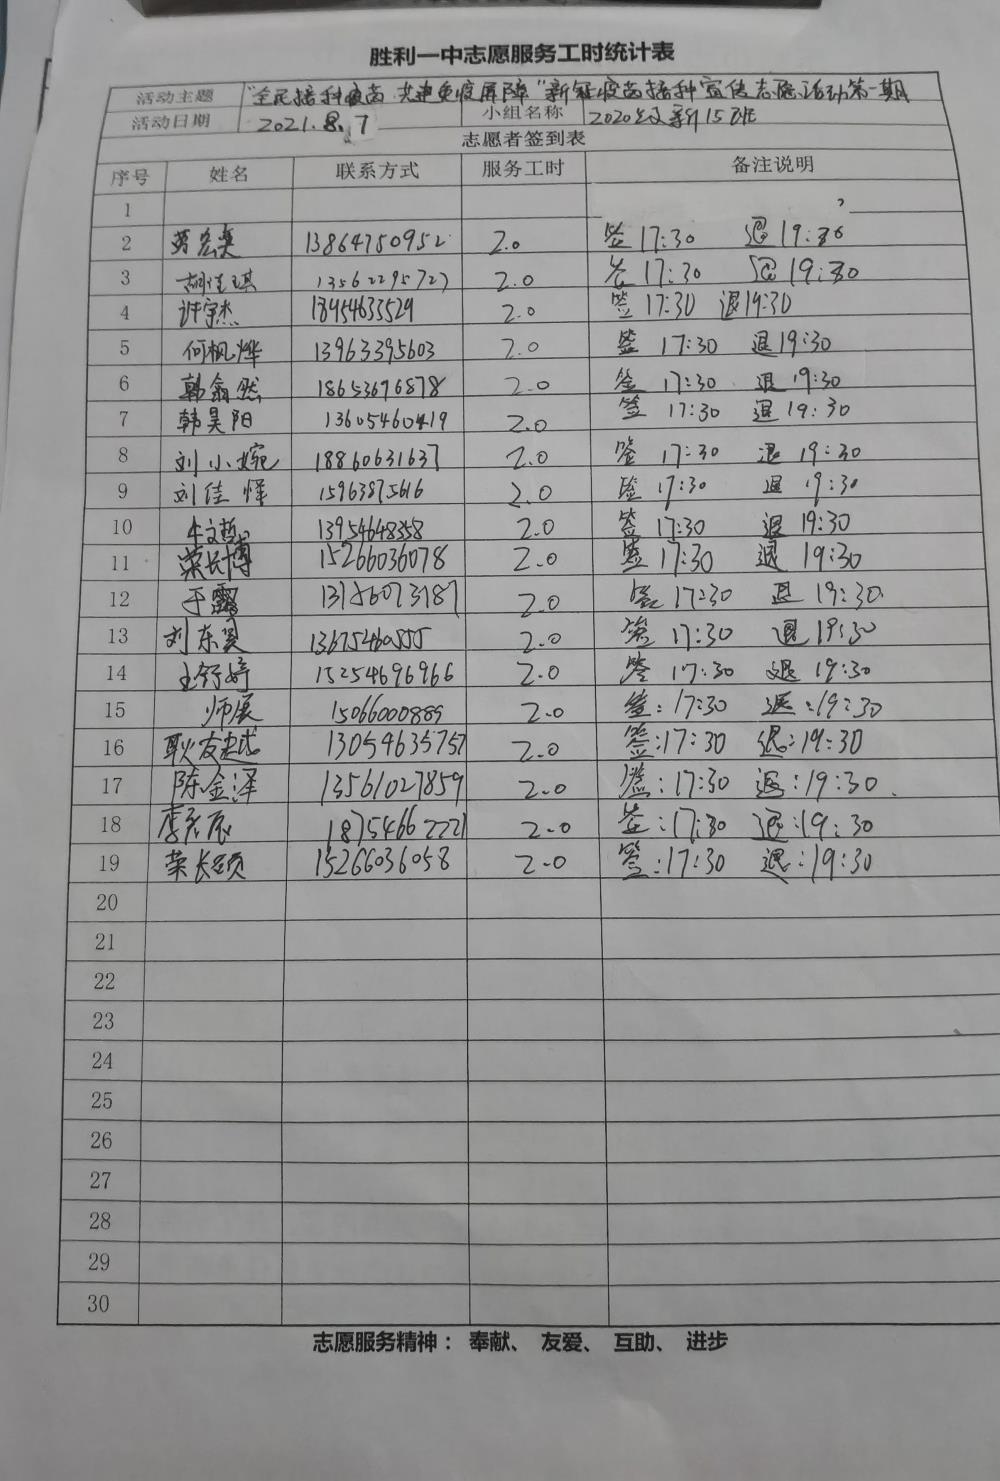 胜利一中志愿服务工时统计表
活动主题 "全民接种疫苗 共建免疫屏障"新冠疫苗接种宣传志愿活动第一期
活动日期 2021.8.7 小组名称 2020级新15班
志愿者签到表
序号 姓名 联系方式 服务工时 备注说明
1
2 13864750952 2.0 签 17:30 退 19:30
3 胡佳琪 13562295727 2.0 签 17:30 退 19:30
4 许宇杰 18954633529 2.0 签 17:30 退 19:30
5 何枫烨 13963395603 2.0 签 17:30 退 19:30
6 韩翕然 18653696878 2.0 签 17:30 退 19:30
7 韩昊阳 13605460419 2.0 签 17:30 退 19:30
8 刘小婉 18860631637 2.0 签 17:30 退 19:30
9 刘佳烨 15963875616 2.0 签 17:30 退 19:30
10 牛文哲 13954648358 2.0 签 17:30 退 19:30
11 荣长博 15266036078 2.0 签 17:30 退 19:30
12 于露 2.0 签 17:30 退 19:30
13 刘东昊 13675460555 2.0 签 17:30 退 19:30
14 王舒婷 15254696966 2.0 签 17:30 退 19:30
15 师展 15066000889 2.0 签:17:30 退:19:30
16 耿友越 13054635757 2.0 签:17:30 退:19:30
17 陈金泽 13561027859 2.0 签:17:30 退:19:30
18 李彦辰 18754662221 2.0 签:17:30 退:19:30
19 荣长硕 15266036058 2.0 签:17:30 退:19:30
20
21
22
23
24
25
26
27
28
29
30
志愿服务精神: 奉献、 友爱、 互助、 进步